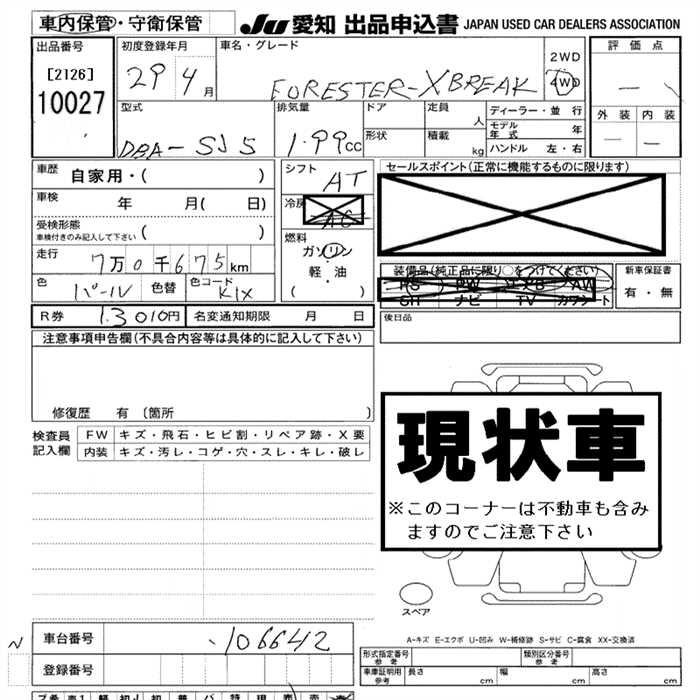 車内保管・守衛保管 JU 愛知 出品申込書 JAPAN USED CAR DEALERS ASSOCIATION
出品番号 初度登録年月 車名・グレード 評価点
[2126] 29 4月 FORESTER-XBREAK 2WD 4WD
10027 外装 内装
型式 排気量 ドア 定員 人 ディーラー・並行
DBA-SJ5 1.99cc 形状 積載 kg モデル年式 年
ハンドル 左・右
車歴 自家用・( ) シフト AT セールスポイント(正常に機能するものに限ります)
車検 年 月( 日) 冷房 AC
受検形態
車検付きのみ記入して下さい ( ) 燃料 ガソリン
軽・油
( )
走行 7万0千675km
色 パール 色替 色コード K1X
装備品(純正品に限り○をつけてください) 新車保証書
PS PW エアB AW 有・無
SH ナビ TV カワシート
R券 13010円 名変通知期限 月 日 後日品
注意事項申告欄(不具合内容等は具体的に記入して下さい)
修復歴 有 (箇所 )
検査員 FW キズ・飛石・ヒビ割・リペア跡・X要
記入欄 内装 キズ・汚レ・コゲ・穴・スレ・キレ・破レ
現状車
※このコーナーは不動車も含み
ますのでご注意下さい
スペア
A-キズ E-エクボ U-凹み W-補修跡 S-サビ C-腐食 XX-交換済
N 車台番号 -106642
登録番号
形式指定番号 参考 類別区分番号 参考
車庫証明用 参考 長さ cm 幅 cm 高さ cm